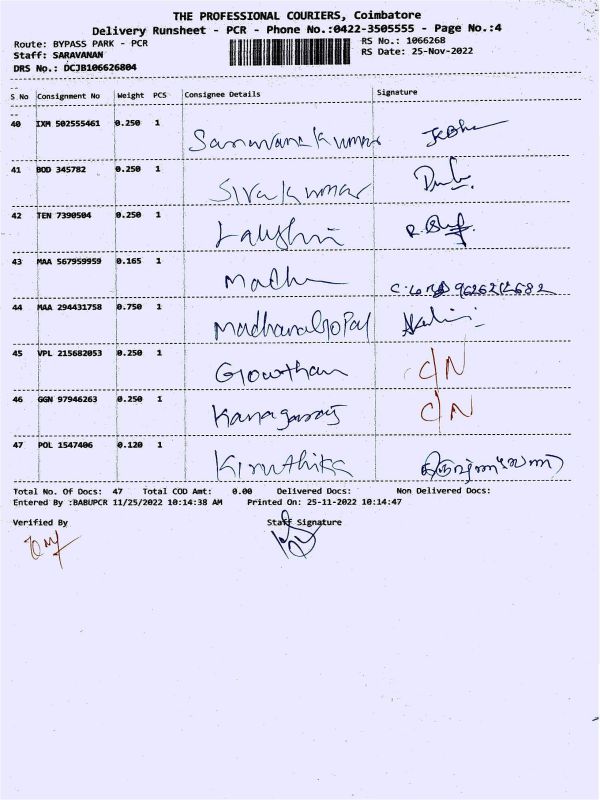 THE PROFESSIONAL COURIERS, Coimbatore
Delivery Runsheet - PCR - Phone No.:0422-3505555 - Page No.:4
Route: BYPASS PARK - PCR RS No.: 1066268
Staff: SARAVANAN RS Date: 25-Nov-2022
DRS No.: DCJB106626804
S No Consignment No Weight PCS Consignee Details Signature
40 IXM 502555461 0.250 1 Saravana kumar
41 BOD 345782 0.250 1 Sivakumar
42 TEN 7390504 0.250 1
43 MAA 567959959 0.165 1 Madhu
44 MAA 294431758 0.750 1 MadhanaGoPal
45 VPL 215682053 0.250 1 Gowtham C/N
46 GGN 97946263 0.250 1 Kanagaraj C/N
47 POL 1547406 0.120 1 Kiruthika
Total No. Of Docs: 47 Total COD Amt: 0.00 Delivered Docs: Non Delivered Docs:
Entered By :BABUPCR 11/25/2022 10:14:38 AM Printed On: 25-11-2022 10:14:47
Verified By Staff Signature